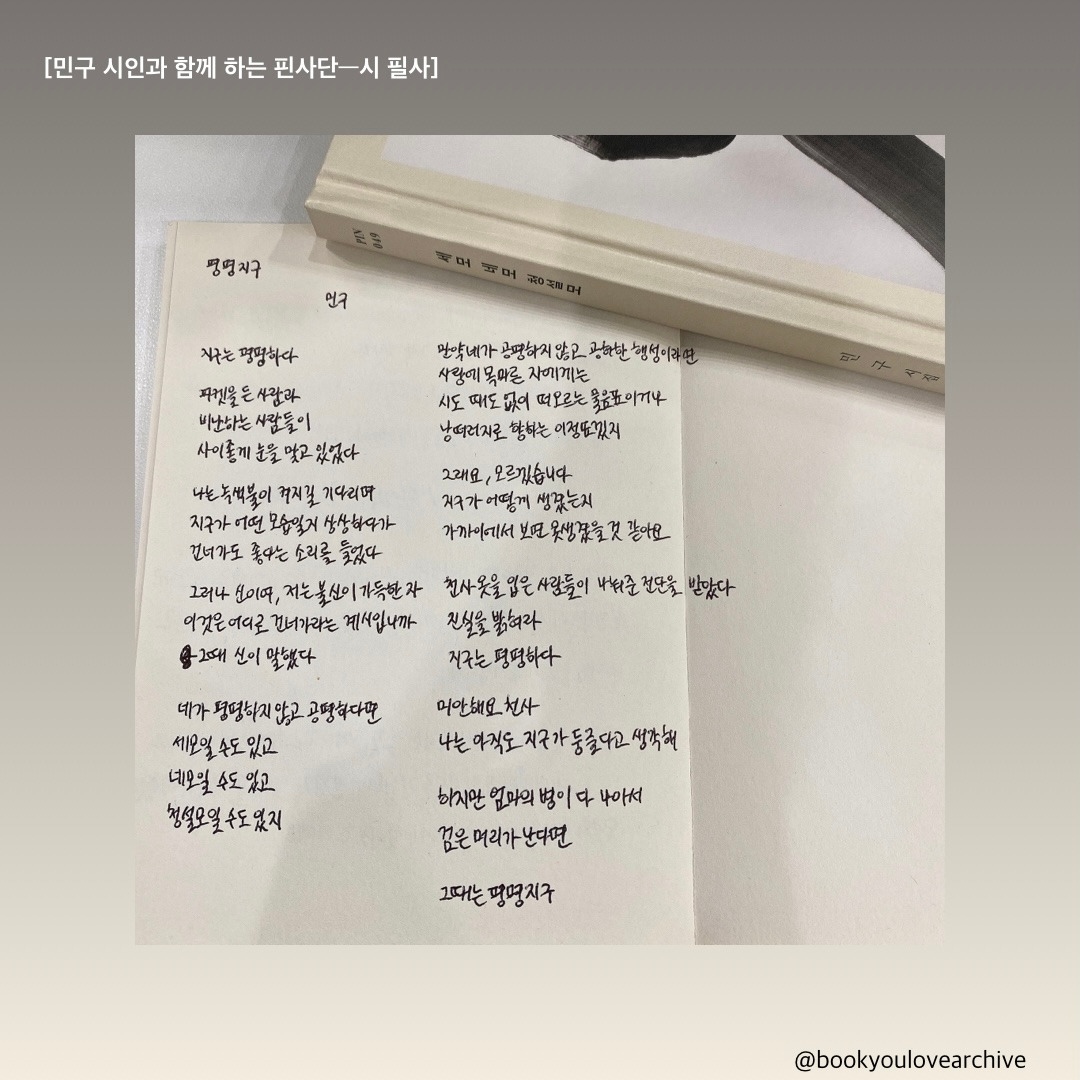 [민구 시인과 함께 하는 핀사단—시 필사]
PIN
049
세모 네모 청설모
민구 시집
평평지구
민구
지구는 평평하다
피켓을 든 사람과
비난하는 사람들이
사이좋게 눈을 맞고 있었다
나는 녹색불이 켜지길 기다리며
지구가 어떤 모습일지 상상하다가
건너가도 좋다는 소리를 들었다
그러나 신이여, 저는 불신이 가득한 자
이것은 어디로 건너가라는 계시입니까
그때 신이 말했다
네가 평평하지 않고 공평하다면
세모일 수도 있고
네모일 수도 있고
청설모일 수도 있지
만약 네가 공평하지 않고 공허한 행성이라면
사랑에 목마른 자에게는
시도 때도 없이 떠오르는 물음표이거나
낭떠러지로 향하는 이정표겠지
그래요, 모르겠습니다
지구가 어떻게 생겼는지
가까이에서 보면 못생겼을 것 같아요
천사 옷을 입은 사람들이 나눠준 전단을 받았다
진실을 밝혀라
지구는 평평하다
미안해요 천사
나는 아직도 지구가 둥글다고 생각해
하지만 엄마의 병이 다 나아서
검은 머리가 난다면
그때는 평평지구
@bookyoulovearchive